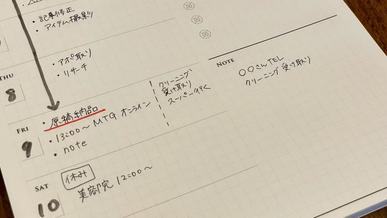 ・記事修正
・アイテム撮影
・アポ取り
・リサーチ
THU
8
・原稿納品
・13:00〜 MTG オンライン
・note
クリーニング
受け取り
スーパー行く
FRI
9
休み
美容院 12:00〜
SAT
10
NOTE
○○さんTEL
クリーニング受け取り